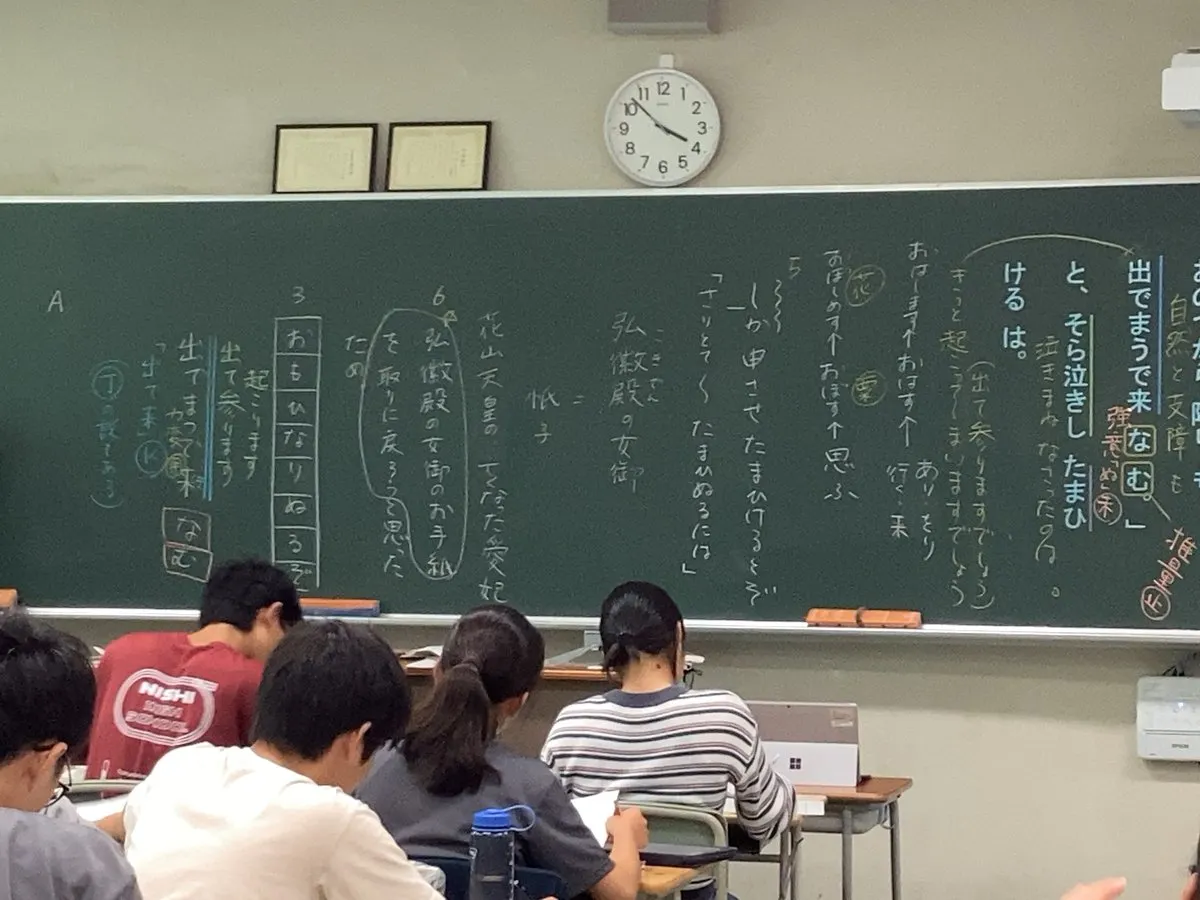 自然と支障も
出でまうで来なむ。」
強意「ぬ」未
推量
と、そら泣きしたまひ
泣きまねなさったのは。
ける は。
(出て参りますでしょう)
きっと起こってしまいますでしょう
おはします←おはす← あり・をり
行く・来
花
おぼしめす←おぼす←思ふ
粟
5
しか申させたまひけるとぞ
「さりとて、たまひぬるには」
こきでん
弘徽殿の女御
=
帋子
花山天皇の、亡くなった愛妃
6
弘徽殿の女御のお手紙
を取りに戻ろうと思った
ため
3
おもひなりぬるぞ
起こります
出て参ります
出でまうで来
カ変
なむ
「出て来」
(丁の説である)
A
12
1
2
3
4
5
6
7
8
9
10
11
NISHI
HIGH
SCHOOL
EPSON